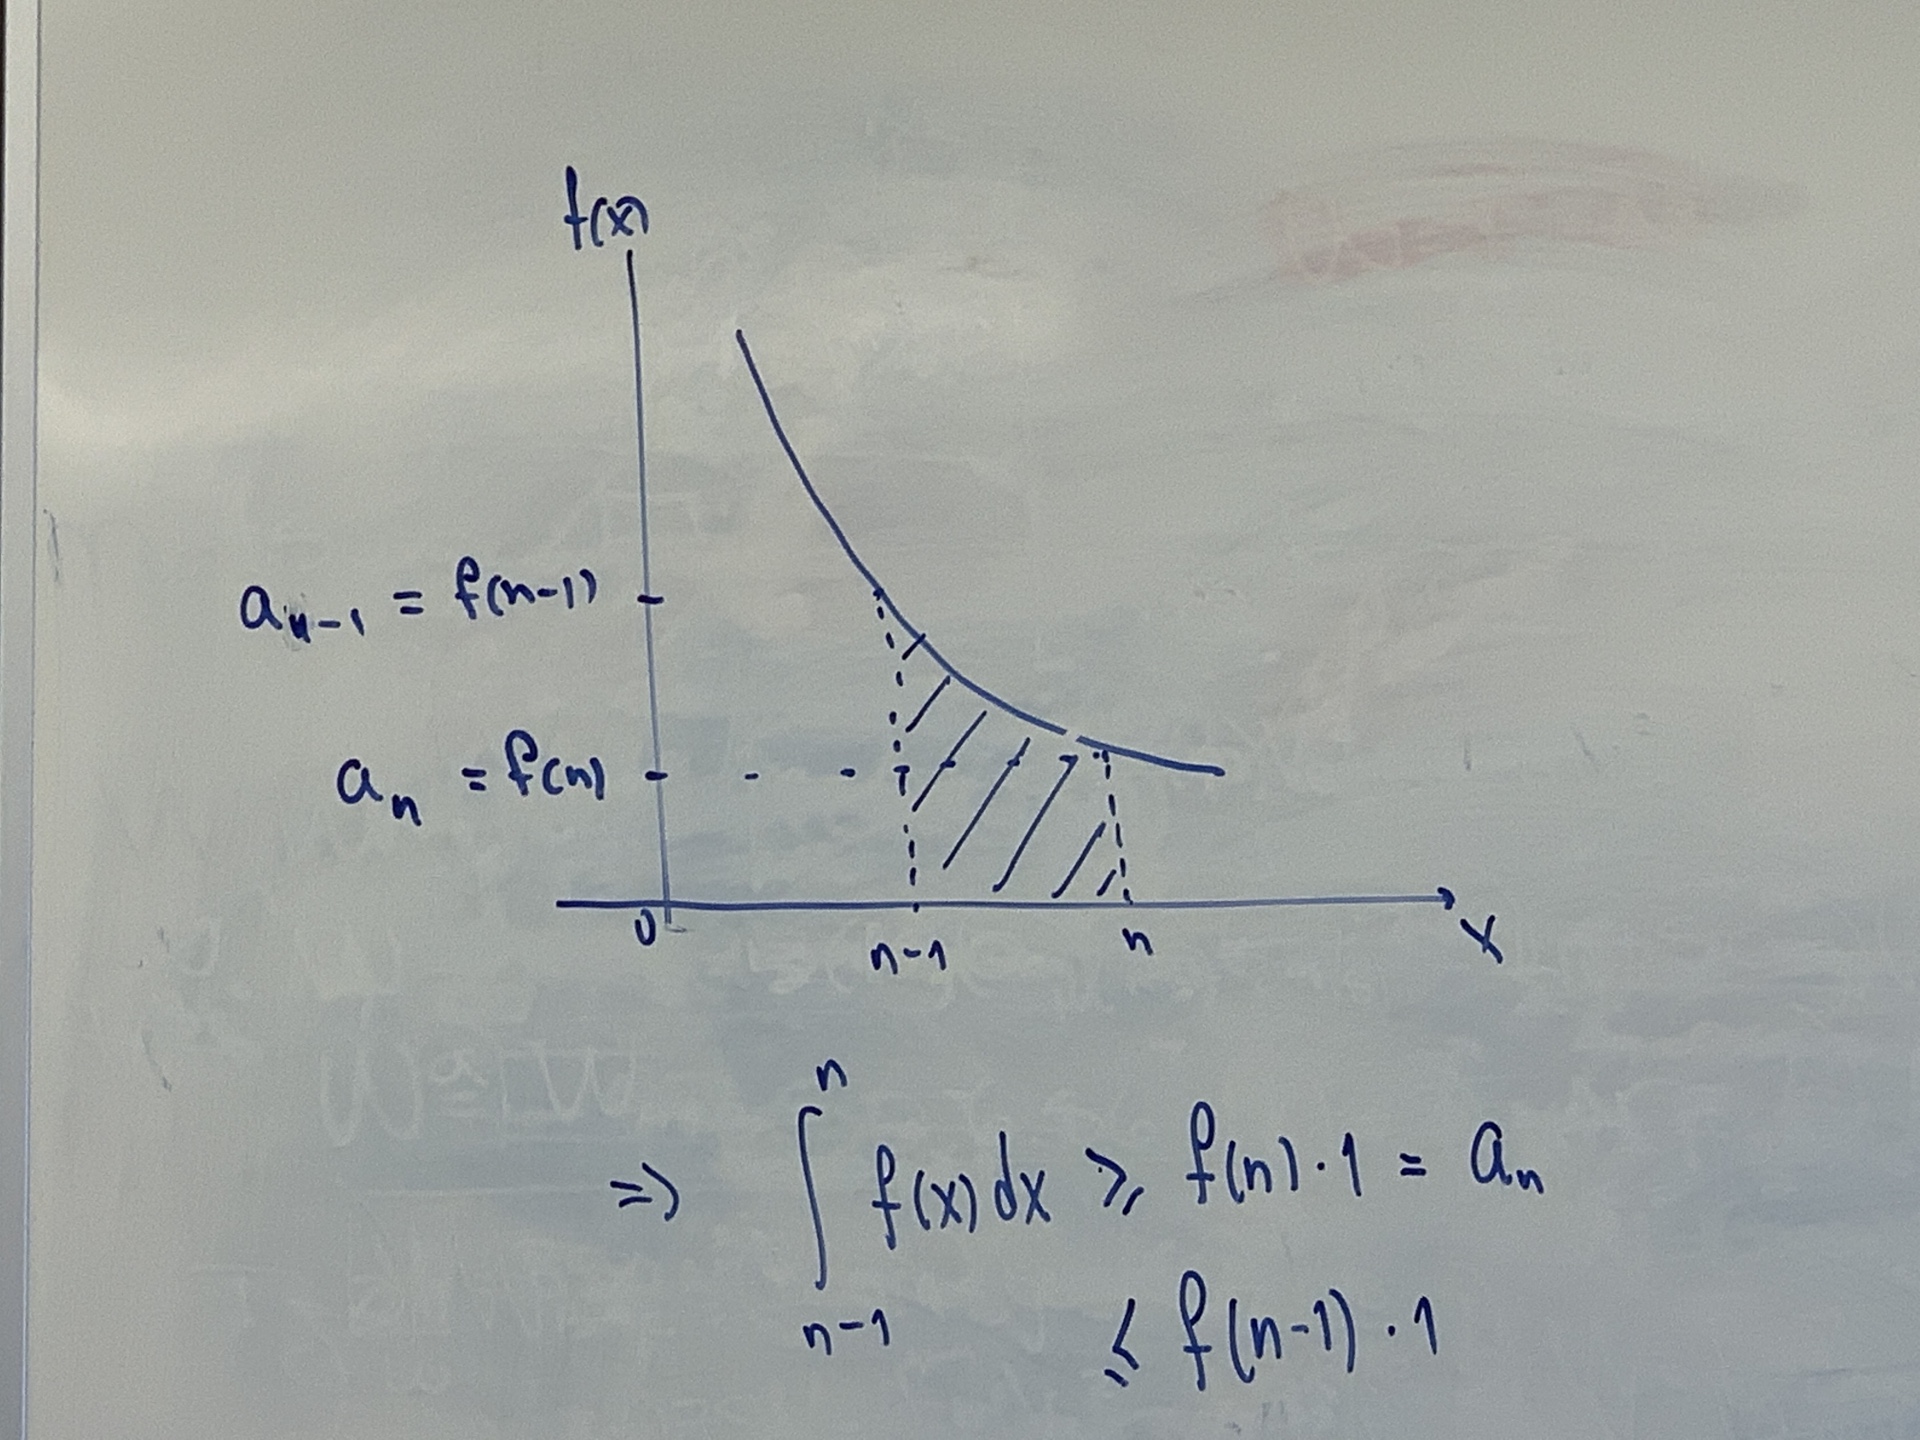 f(x)
aₙ₋₁ = f(n-1)
aₙ = f(n)
0
n-1
n
x
=> ∫ₙ₋₁ⁿ f(x) dx ≥ f(n)·1 = aₙ
≤ f(n-1)·1